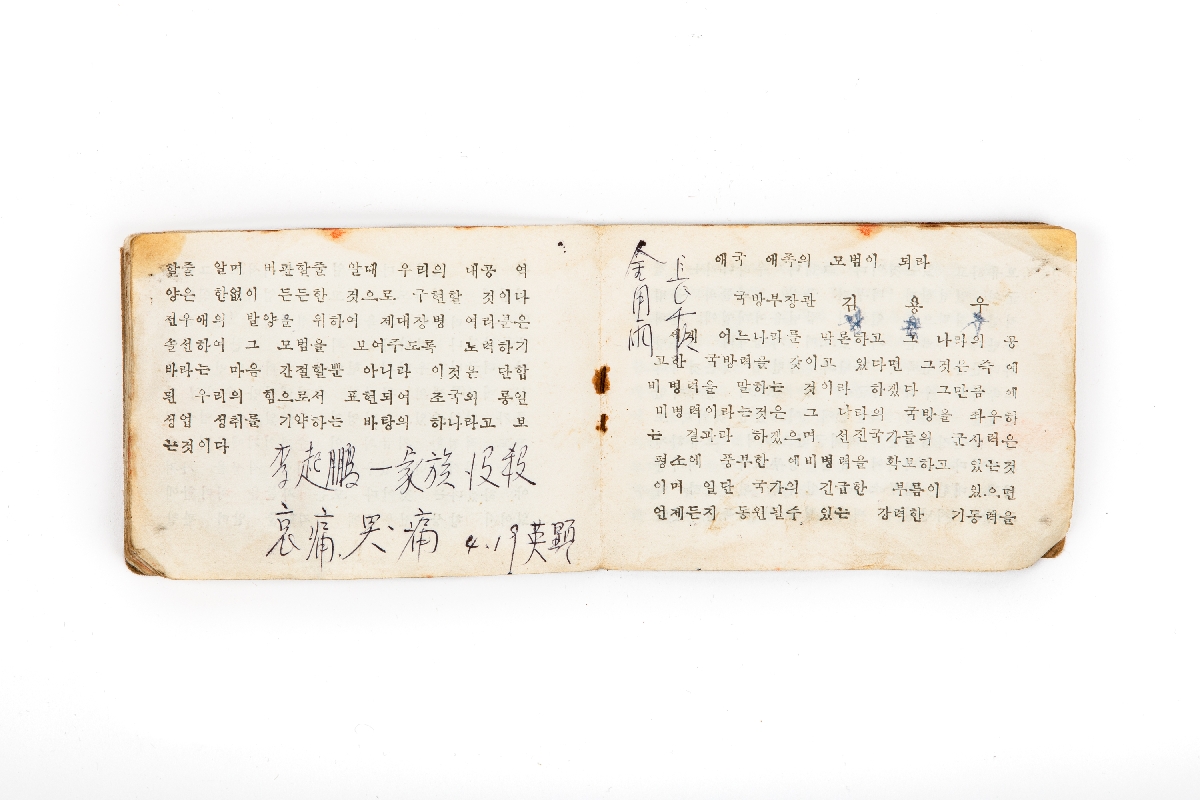 할줄 알며 비판할줄 알때 우리의 대공 역
양은 한없이 든든한 것으로 구현할 것이다
전우애의 발양을 위하여 제대장병 여러분은
솔선하여 그 모범을 보여주도록 노력하기
바라는 마음 간절할뿐 아니라 이것은 단합
된 우리의 힘으로서 표현되여 조국의 통일
성업 성취를 기약하는 바탕의 하나라고 보
는것이다
李起鵬 一家族 殺
哀痛 哭 痛 4.19 英顯
金用雨
長
애국 애족의 모범이 되라
국방부장관 김 용 우
어느나라를 막론하고 그 나라의 공
고한 국방력을 갖이고 있다면 그것은 즉 예
비병력을 말하는 것이라 하겠다 그만큼 예
비병력이라는것은 그 나라의 국방을 좌우하
는 결과라 하겠으며 선진국가들의 군사력은
평소에 풍부한 예비병력을 확보하고 있는것
이며 일단 국가의 긴급한 부름이 있으면
언제든지 동원될수 있는 강력한 기동력을